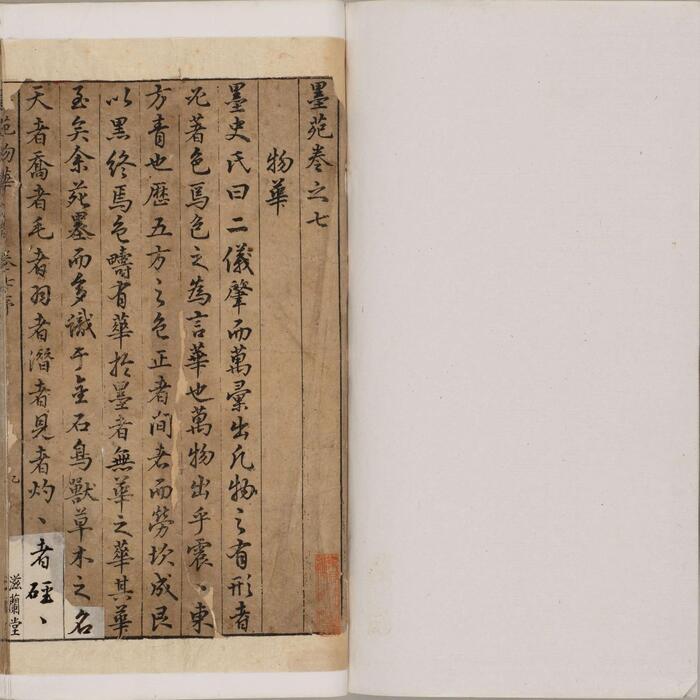 墨苑卷之七
物華
墨史氏曰二儀肇而萬彙出凡物之有形者
著色焉色之為言華也萬物出乎震丶東
方青也歷五方之色正者間者而勞坎成艮
以黑終焉色疇有華於墨者無華之華其華
至矣余苑墨而多識于金石鳥獸草木之名
天者喬者毛者羽者潛者見者灼丶者硜丶
苑物華 卷七序
滋蘭堂